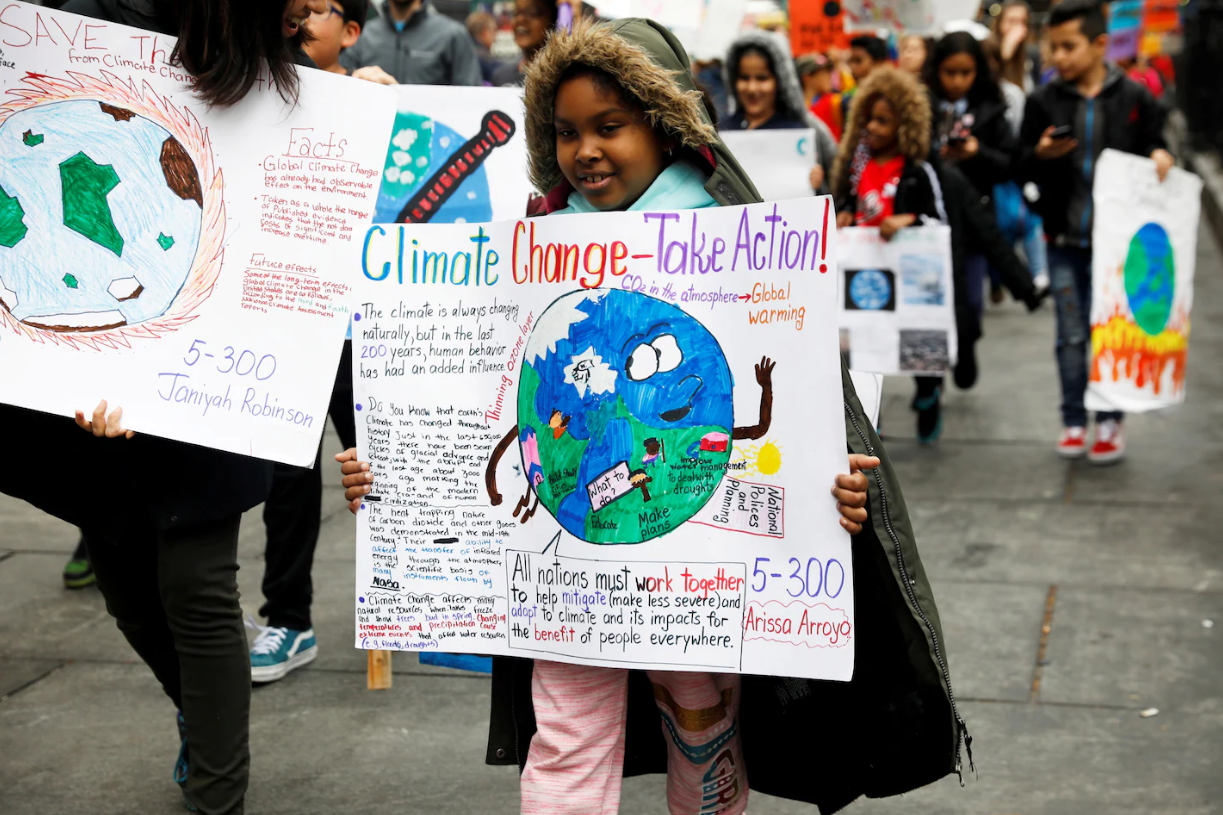 SAVE The
from Climate Change
Facts
• Global Climate Change
has already had observable
effect on the environment
• Taken as a whole the range
of published evidence
indicates that the net dam
costs of Significant and
increase overtime.
Future effects
Some of the long-term effects of
global climate Change in the
United States are as follows,
According to the third and fourth
National Climate Assessment
reports
5-300
Janiyah Robinson
Climate Change-Take Action!
CO2 in the atmosphere→Global
warming
• The climate is always changing
naturally, but in the last
200 years, human behavior
has had an added influence.
Thinning ozone layer
• Do you know that earth's
Climate has changed throughout
history Just in the last 650,000
Years there have been seven
cycles of glacial advance and
retreat, with the abrupt end
of the last age about 7,000
years ago marking the
beginning of the modern
climate era-and of human
Civilization.
• The heat trapping nature
of Carbon dioxide and other gases
was demonstrated in the mid-19th
century: Their ability to
affect the transfer of infrared
energy through the atmosphere
is the scientific basis of
many instruments flown by
Nasa.
• Climate Change affects many
natural resources when lakes freeze
and thaw trees bud in spring. Changing
temperatures and precipitation cause
extreme events that affect water resources
(e.g. floods, droughts)
Build
What to
do?
Educate
Make
plans
Improve
water management
to deal with
droughts
National
Polices
and
Planning
All nations must work together
to help mitigate (make less severe) and
adapt to climate and its impacts for
the benefit of people everywhere.
5-300
Arissa Arroyo
Global Climate